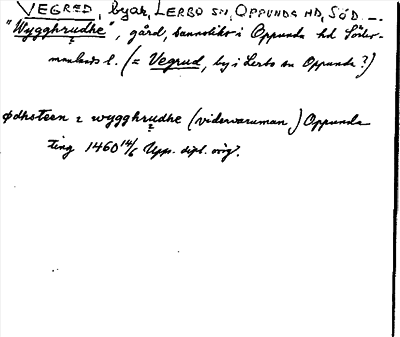 VEGRED, byar, LERBO SN, OPPUNDA HD, SÖD. —.
"Wygghrudhe", gård, sannolikt i Oppunda hd Söder-
manlands l. (= Vegrud, by i Lerbo sn Oppunda?)
Ødhsteen i wygghrudhe (vidervaruman) Oppunda
ting 1460 14/6 Upps. dipl. orig.